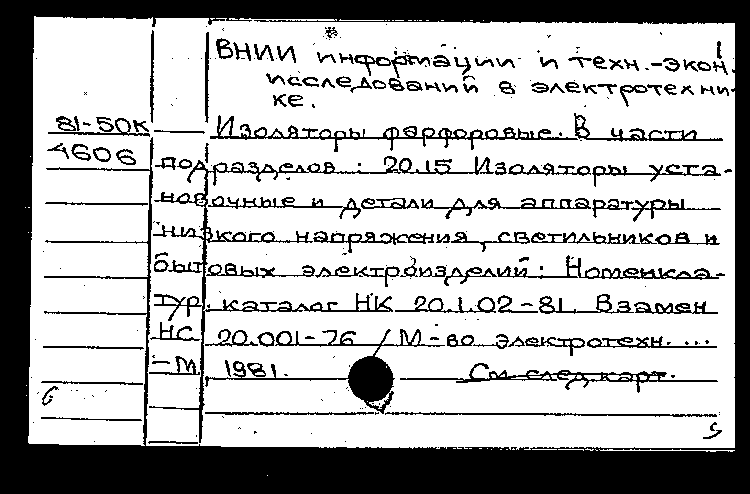 1
ВНИИ информации и техн.-экон.
исследований в электротехни-
ке.
81-50К Изоляторы фарфоровые. В части
4606 подразделов: 20.15 Изоляторы уста-
новочные и детали для аппаратуры
низкого напряжения, светильников и
бытовых электроизделий: Номенкла-
тур. каталог НК 20.1.02-81. Взамен
НС 20.001-76 / М-во электротехн. ...
- М, 1981. См след. карт.